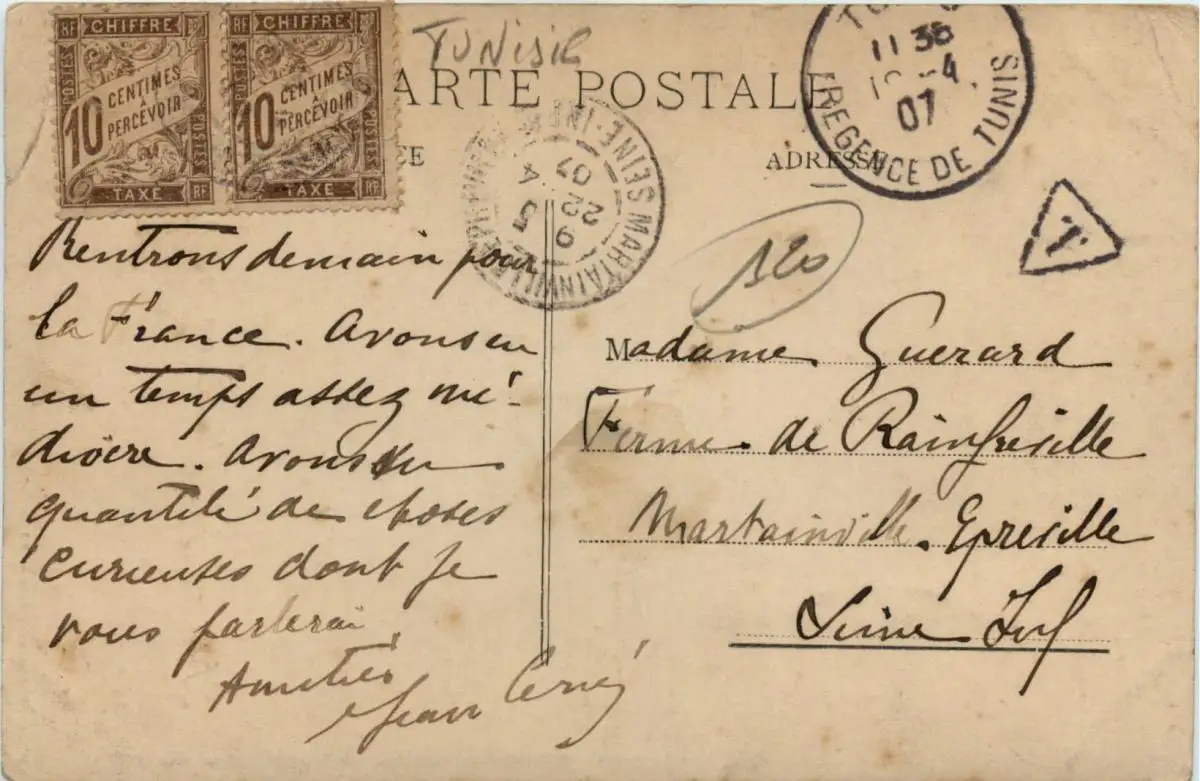 RF CHIFFRE RF
POSTES
10 CENTIMES
À
PERCEVOIR
POSTES
TAXE RF
RF CHIFFRE
10 CENTIMES
À
PERCEVOIR
POSTES
TAXE RF
TUNISIE
ARTE POSTALE
CE
ADRESSE
11 35
4
07
REGENCE DE TUNIS
SEINE-INF
MARTAINVILLE
07
22
9
T
120
Rentrons demain pour
la France. Avons eu
un temps assez mé-
diocre. Avons eu
quantité de choses
curieuses dont je
vous parlerai
Amitiés
Jean
Madame Guerard
Ferme de Rainfreville
Martainville. Epreville
Seine Inf